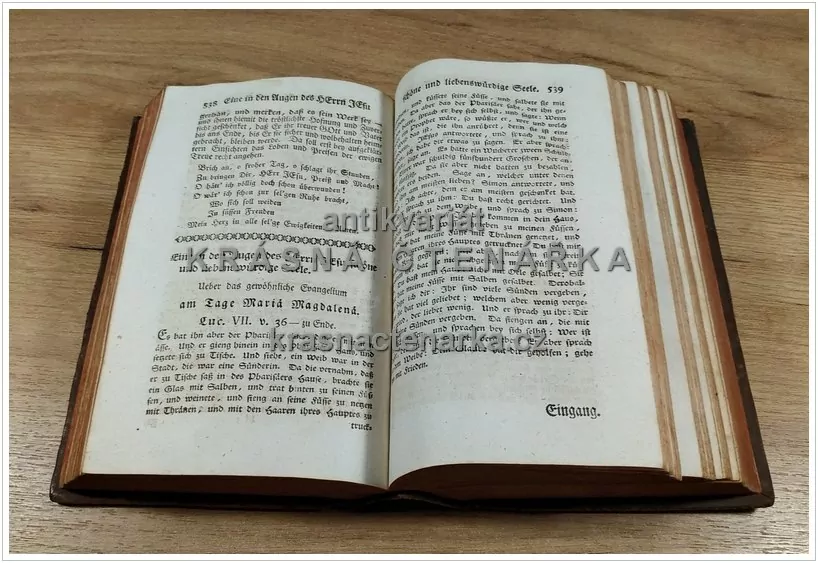 538 Eine in den Augen des HErrn JEsu
merken, daß es sein Werk sey
und ihnen hiemit die tröstlichste Hofnung und
geschenket, daß Er ihr treuer GOtt und Vater
bis ans Ende, bis Er sie sicher und wolbehalten heim-
gebracht, bleiben werde. Da soll erst bey aufgeklär-
ten Einsichten das Loben und Preisen der ewigen
Treue recht angehen.
Brich an, o froher Tag, o schlage ihr Stunden,
Zu bringen Dir, HErr JEsu, Preiß und Macht!
O hätt' ich völlig doch schon überwunden!
O wär' ich schon zur sel'gen Ruhe bracht,
Wo sich soll weiden
In süssen Freuden
Mein Herz in alle sel'ge Ewigkeiten!
Eine in den Augen des HErrn JEsu schöne
und liebenswürdige Seele.
Ueber das gewöhnliche Evangelium
am Tage Mariä Magdalenä.
Luc. VII. v. 36— zu Ende.
Es bat ihn aber der Pharisäer
ässe. Und er gieng hinein in des Pharisäers Haus, und
setzete sich zu Tische. Und siehe, ein Weib war in der
Stadt, die war eine Sünderin. Da die vernahm, daß
er zu Tische saß in des Pharisäers Hause, brachte sie
ein Glas mit Salben, und trat hinten zu seinen Füs-
sen, und weinete, und fieng an seine Füsse zu netzen
mit Thränen, und mit den Haaren ihres Hauptes zu
truck-
schöne und liebenswürdige Seele. 539
und küssete seine Füsse, und salbete sie mit
Da aber das der Pharisäer sahe, der ihn ge-
sprach er bey sich selbst, und sagte: Wenn
Prophet wäre, so wüßte er, wer und welch
ist, die ihn anrühret, denn sie ist eine
antwortete, und sprach zu ihm:
ich habe dir etwas zu sagen. Er aber sprach:
Es hatte ein Wucherer zween Schuld-
war schuldig fünfhundert Groschen, der an-
Da sie aber nicht hatten zu bezahlen,
beyden. Sage an, welcher unter denen
am meisten lieben? Simon antwortete, und
Ich achte, dem er am meisten geschenket hat.
sprach zu ihm: Du hast recht gerichtet. Und
und sprach zu Simon:
kommen in dein Haus,
zu meinen Füssen,
meine Füsse mit Thränen genetzet, und
ihres Hauptes getrucknet. Du hast mir
mein Haupt nicht mit Oele gesalbet; Sie
meine Füsse mit Salben gesalbet. Derohal-
ich dir: Ihr sind viele Sünden vergeben,
hat viel geliebet; welchem aber wenig verge-
liebet wenig. Und er sprach zu ihr: Dir
Sünden vergeben. Da fiengen an, die mit
und sprachen bey sich selbst: Wer ist
die Sünden vergiebt? Er aber sprach
Weibe: Dein Glaube hat dir geholfen; gehe
mit Frieden.
Eingang.
antikvariát
KRÁSNÁ ČTENÁŘKA
krasnactenarka.cz